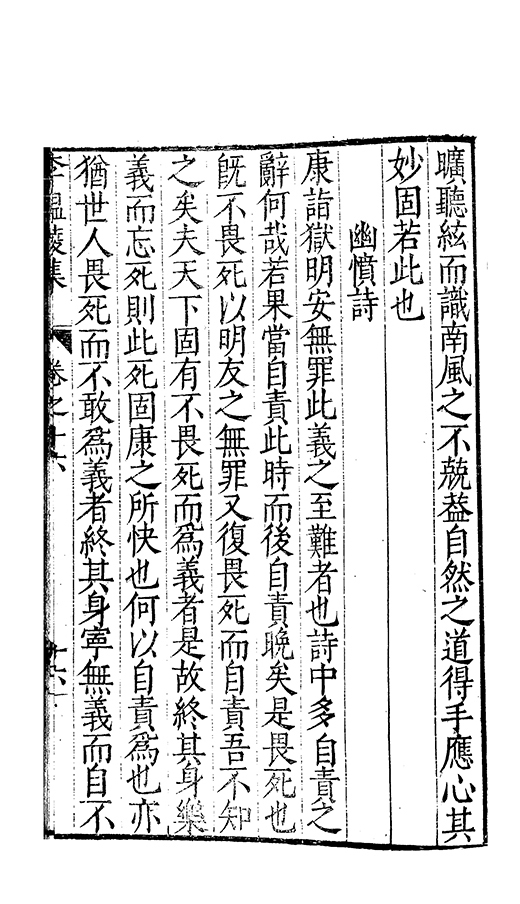 曠聽絃而識南風之不兢葢自然之道得手應心其
妙固若此也
幽憤詩
康詣獄明安無罪此義之至難者也詩中多自責之
辭何哉若果當自責此時而後自責晚矣是畏死也
旣不畏死以明友之無罪又復畏死而自責吾不知
之矣夫天下固有不畏死而爲義者是故終其身樂
義而忘死則此死固康之所快也何以自責爲也亦
猶世人畏死而不敢爲義者終其身寧無義而自不
李溫陵集 卷之十六 十六